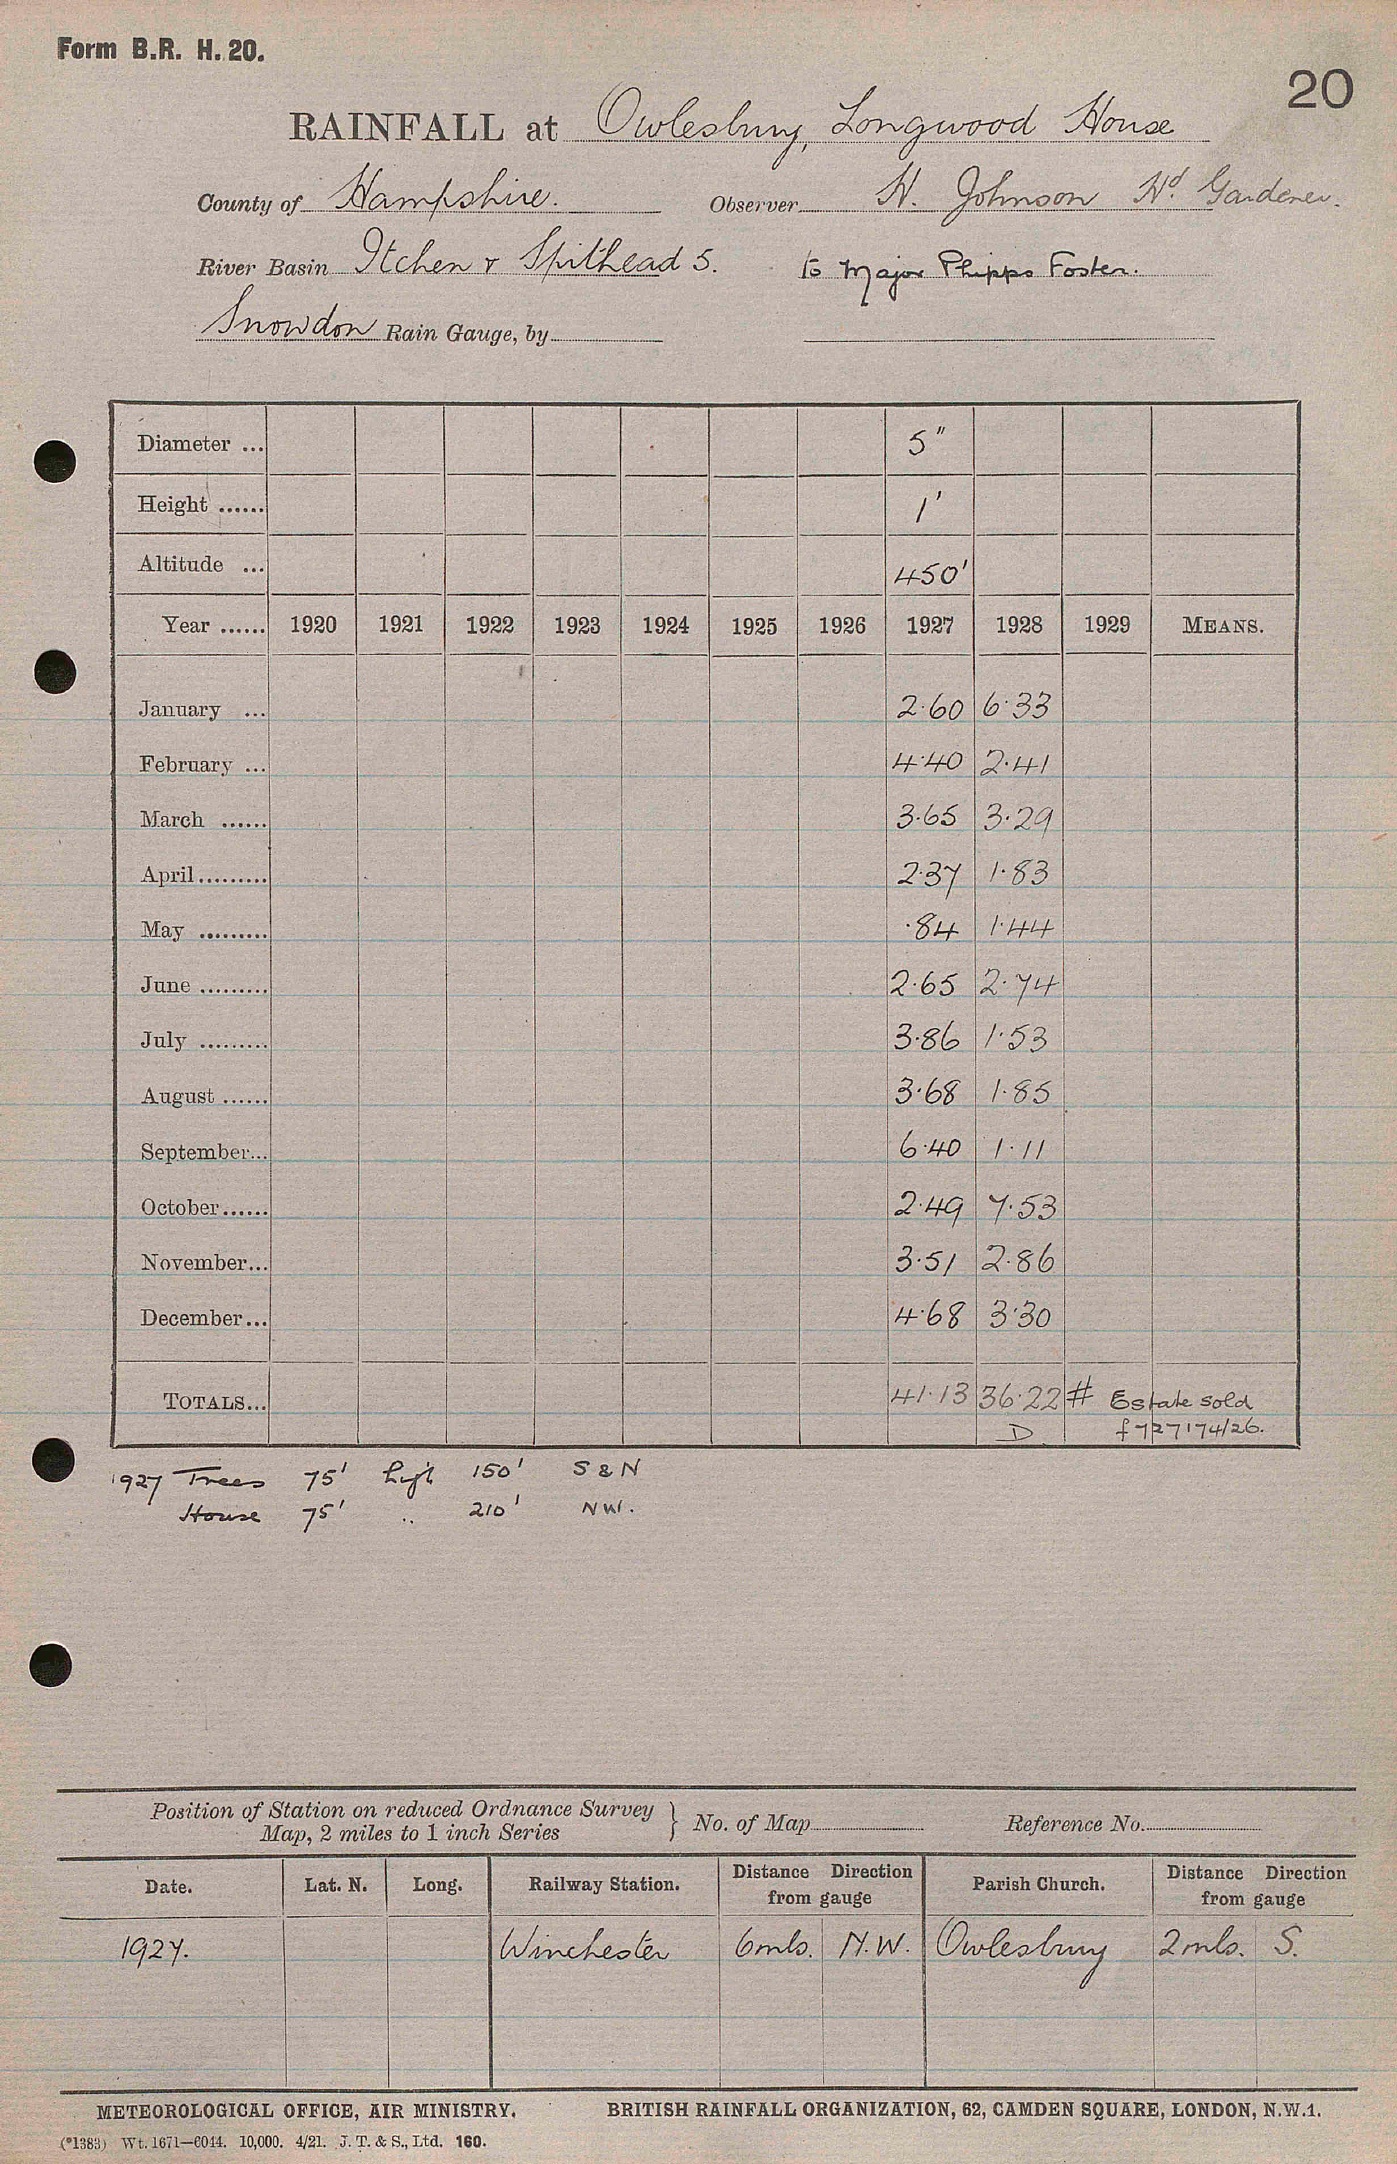 Form B.R. H. 20.
20
RAINFALL at Owlesbury, Longwood House
County of Hampshire. Observer H. Johnson Hd. Gardener.
River Basin Itchen & Spithead S. to Major Phipps Foster.
Snowdon Rain Gauge, by
Diameter ... 5"
Height ...... 1'
Altitude ... 450'
Year ...... 1920 1921 1922 1923 1924 1925 1926 1927 1928 1929 MEANS.
January ... 2.60 6.33
February ... 4.40 2.41
March ...... 3.65 3.29
April ......... 2.37 1.83
May ......... .84 1.44
June ......... 2.65 2.74
July ......... 3.86 1.53
August ...... 3.68 1.85
September... 6.40 1.11
October ...... 2.49 7.53
November... 3.51 2.86
December... 4.68 3.30
TOTALS... 41.13 36.22 # Estate sold
D f727174/26.
1927 Trees 75' high 150' S & N
House 75' .. 210' NW.
Position of Station on reduced Ordnance Survey
Map, 2 miles to 1 inch Series } No. of Map Reference No.
Date. Lat. N. Long. Railway Station. Distance Direction from gauge Parish Church. Distance Direction from gauge
1927. Winchester 6 mls. N.W. Owlesbury 2 mls. S.
METEOROLOGICAL OFFICE, AIR MINISTRY. BRITISH RAINFALL ORGANIZATION, 62, CAMDEN SQUARE, LONDON, N.W.1.
(*1383) Wt. 1671—6044. 10,000. 4/21. J. T. & S., Ltd. 160.